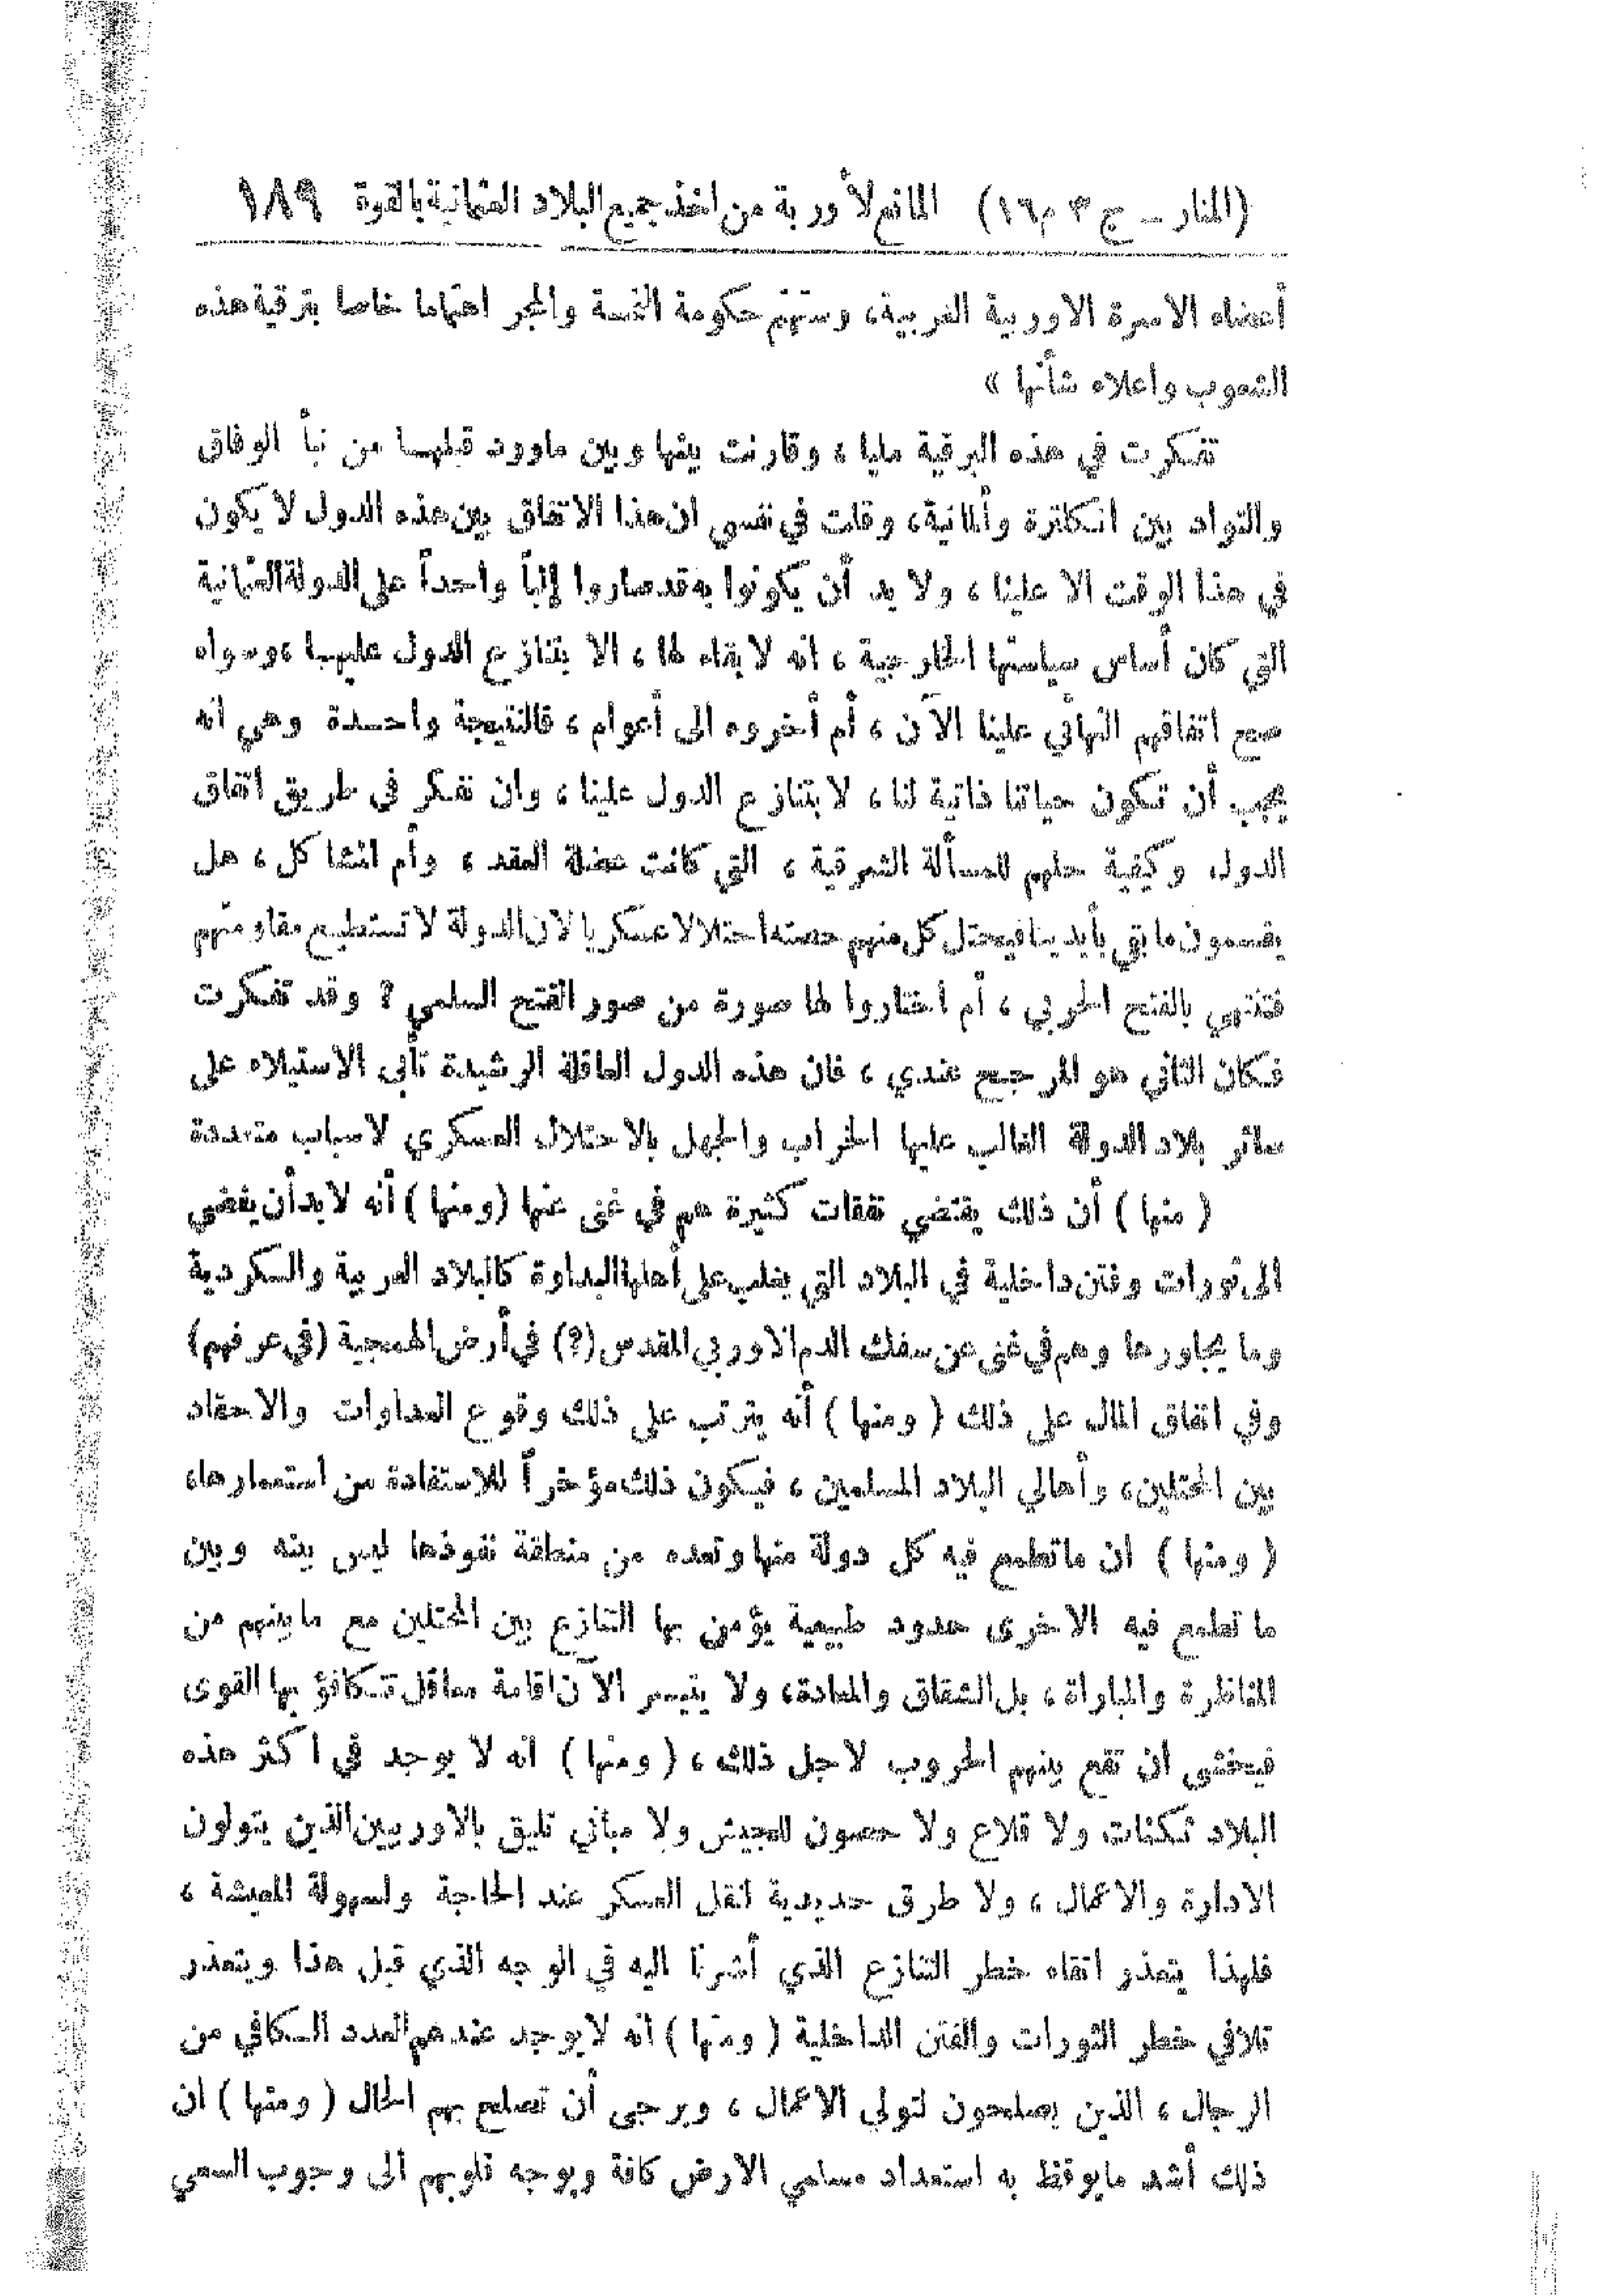 (المنار – ج ٣ م ١٦) المانع لأوربة من اخذ جميع البلاد العثمانية بالقوة ١٨٩
أعضاء الاسرة الاوربية الغربية، وستهتم حكومة النمسة والمجر اهتماما خاصا بترقية هذه
الشعوب واعلاء شأنها »
تفكرت في هذه البرقية مليا ، وقارنت بينها وبين ماورد قبلها من نبأ الوفاق
والتواد بين انكلترة وألمانية، وقلت في نفسي ان هذا الاتفاق بين هذه الدول لا يكون
في هذا الوقت الا علينا ، ولا بد أن يكونوا به قد صاروا إلباً واحداً على الدولة العثمانية
التي كان أساس سياستها الخارجية ، انه لا بقاء لها ، الا بتنازع الدول عليها ، وسواء
صح اتفاقهم النهائي علينا الآن ، أم أخروه الى أعوام ، فالنتيجة واحدة وهي انه
يجب أن تكون حياتنا ذاتية لنا ، لا بتنازع الدول علينا ، وان نفكر في طريق اتفاق
الدول وكيفية حلهم للمسألة الشرقية ، التي كانت عضلة العقد ، وأم المشاكل ، هل
يقسمون ما بقي بأيدينا فيحتل كل منهم حصته احتلالا عسكريا لان الدولة لا تستطيع مقاومتهم
فتنتهي بالفتح الحربي ، أم اختاروا لها صورة من صور الفتح السلمي ؟ وقد تفكرت
فكان الثاني هو المرجح عندي ، فان هذه الدول العاقلة الرشيدة تأبى الاستيلاء على
سائر بلاد الدولة الغالب عليها الخراب والجهل بالاحتلال العسكري لاسباب متعددة
( منها ) أن ذلك يقتضي نفقات كثيرة هم في غنى عنها (ومنها ) أنه لابد أن يفضي
الى ثورات وفتن داخلية في البلاد التي يغلب على أهلها البداوة كالبلاد العربية والكردية
وما يجاورها وهم في غنى عن سفك الدم الاوربي المقدس (؟) في أرض الهمجية (في عرفهم)
وفي انفاق المال على ذلك ( ومنها ) أنه يترتب على ذلك وقوع العداوات والاحقاد
بين المحتلين، وأهالي البلاد المسلمين ، فيكون ذلك مؤخراً للاستفادة من استعمارها،
( ومنها ) ان ماتطمع فيه كل دولة منها وتعده من منطقة نفوذها ليس بينه وبين
ما تطمع فيه الاخرى حدود طبيعية يؤمن بها التنازع بين المحتلين مع مابينهم من
المناظرة والمباراة ، بل الشقاق والمعادة، ولا يتيسر الآن اقامة معاقل تتكافؤ بها القوى
فيخشى ان تقع بينهم الحروب لاجل ذلك ، ( ومنها ) انه لا يوجد في اكثر هذه
البلاد ثكنات ولا قلاع ولا حصون للجيش ولا مباني تليق بالاوربيين الذين يتولون
الادارة والاعمال ، ولا طرق حديدية لنقل العسكر عند الحاجة ولسهولة المعيشة ،
فلهذا يتعذر اتقاء خطر التنازع الذي أشرنا اليه في الوجه الذي قبل هذا ويتعذر
تلافي خطر الثورات والفتن الداخلية ( ومنها ) انه لايوجد عندهم العدد الكافي من
الرجال ، الذين يصلحون لتولي الاعمال ، ويرجى أن تصلح بهم الحال ( ومنها ) ان
ذلك أشد مايوقظ به استعداد مسلمي الارض كافة ويوجه قلوبهم الى وجوب السعي